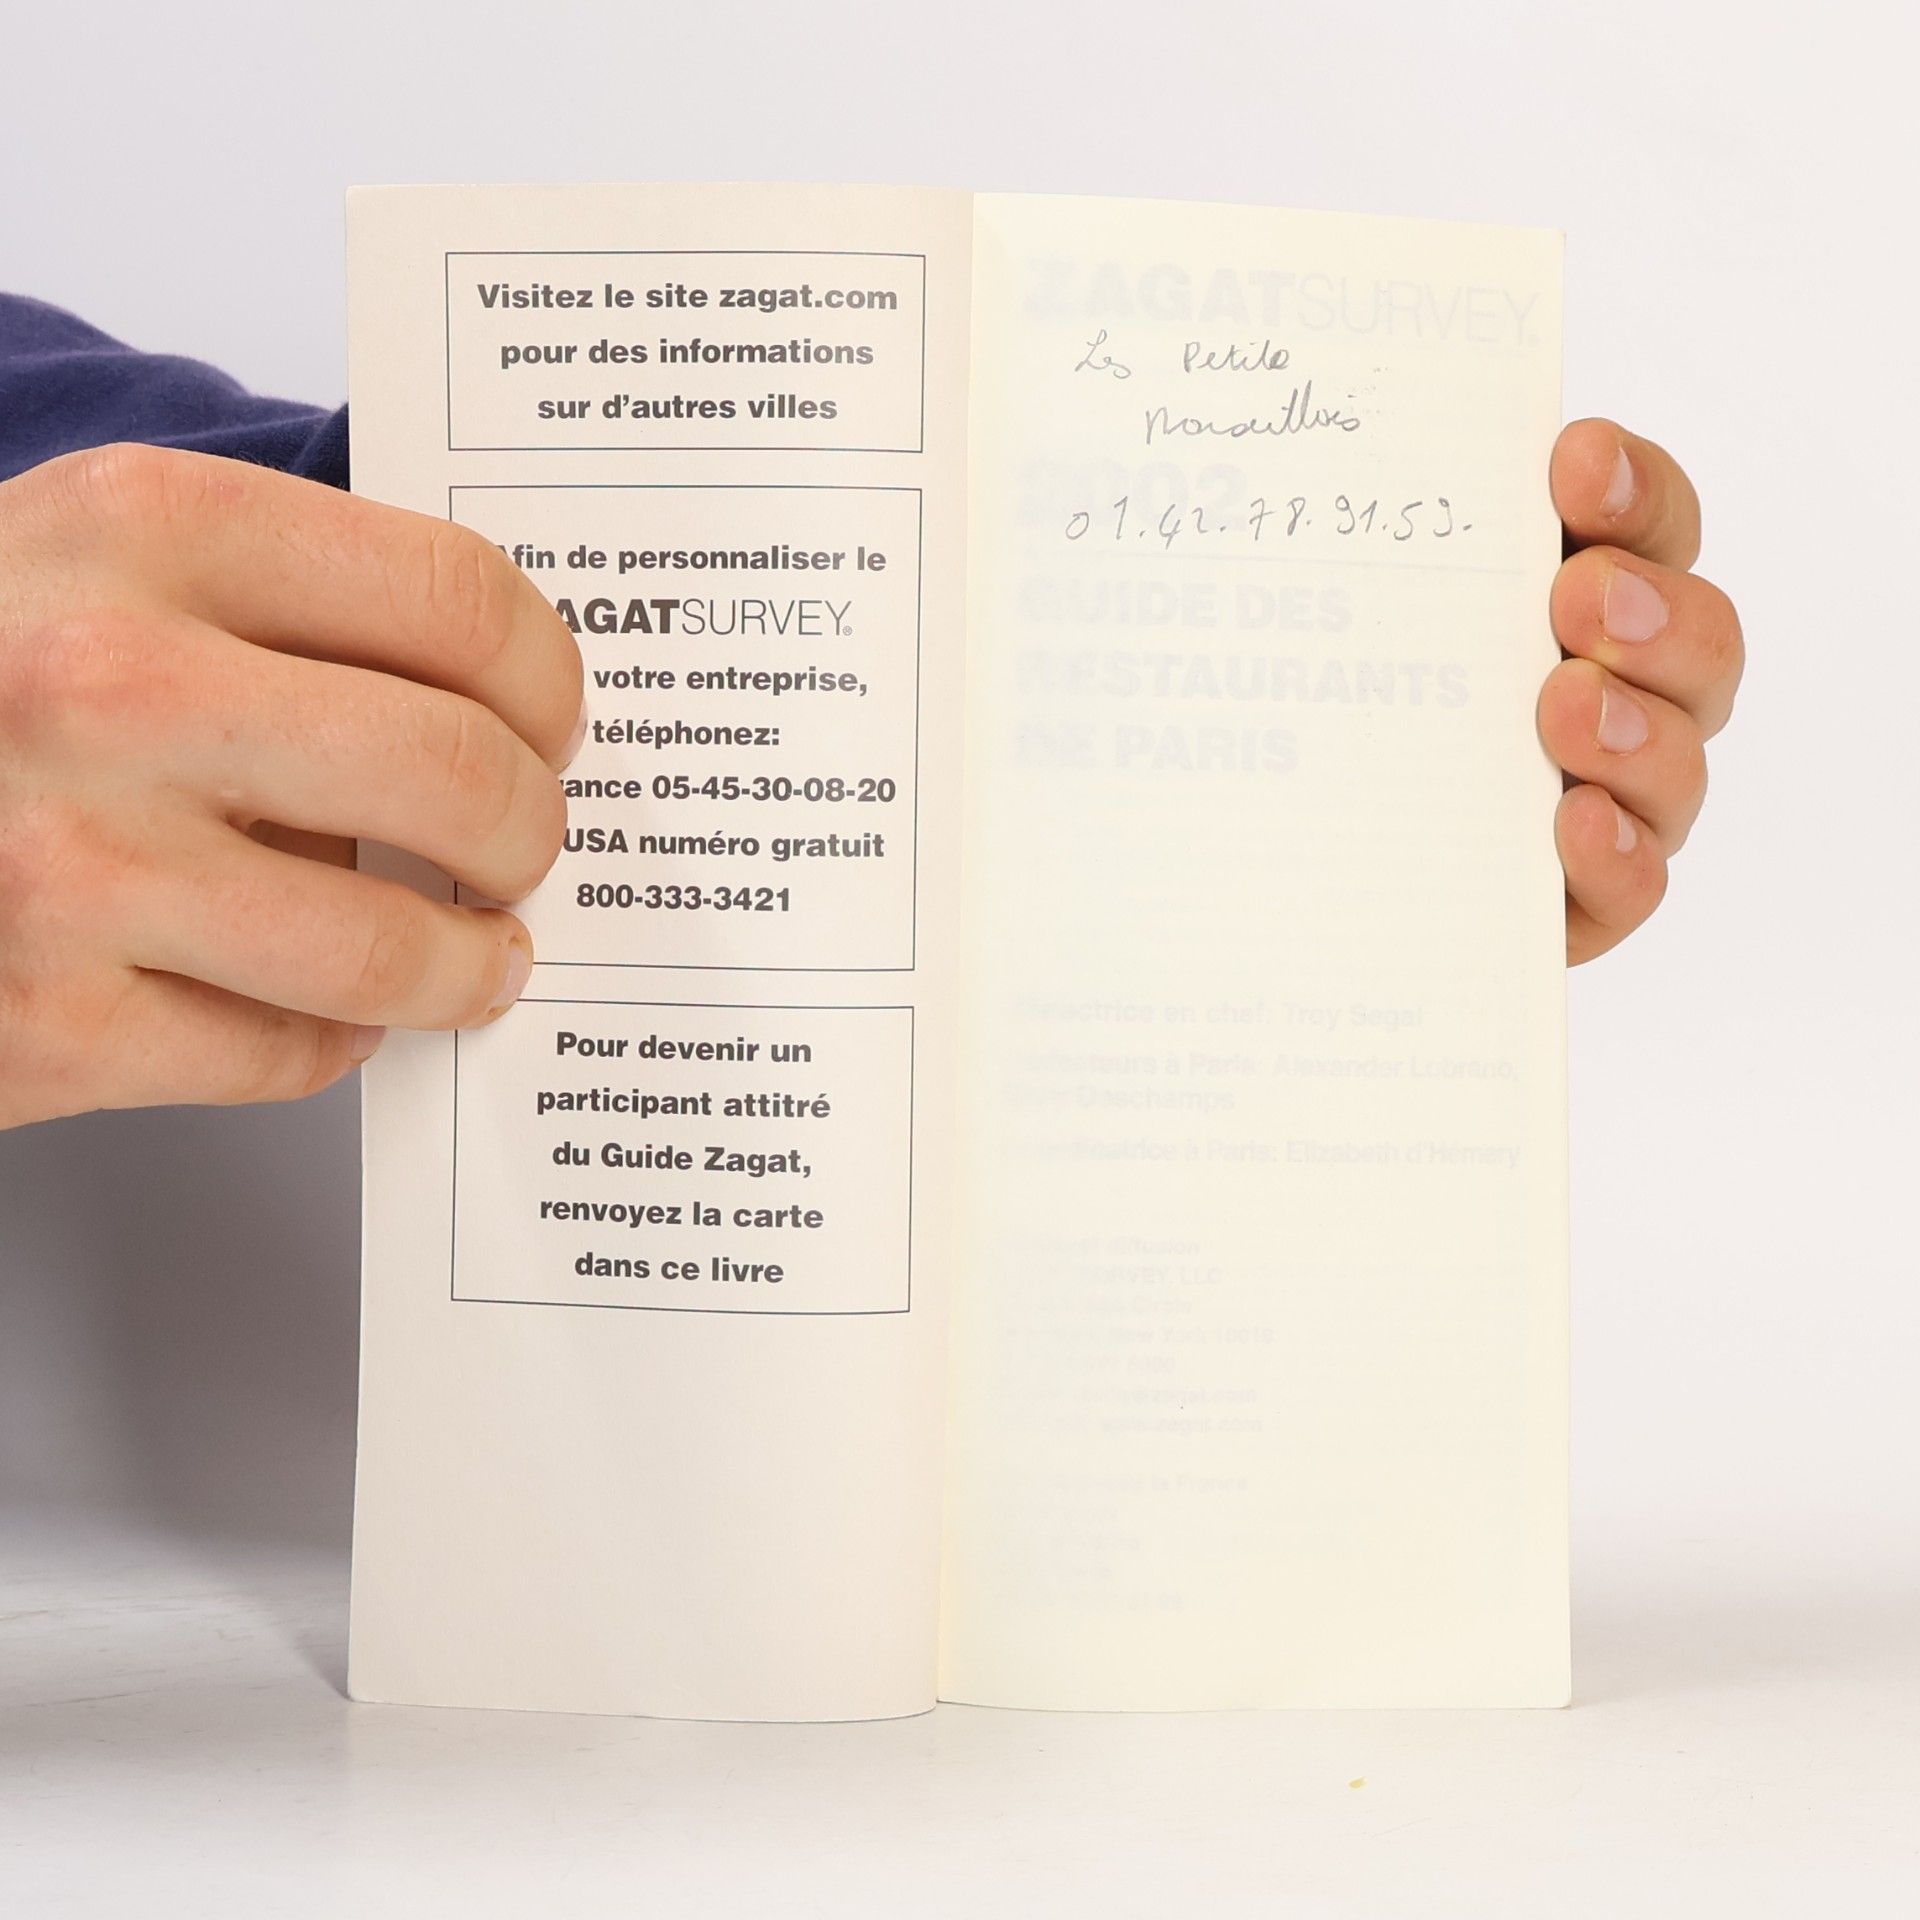 Visitez le site zagat.com
pour des informations
sur d'autres villes
fin de personnaliser le
AGATSURVEY®
votre entreprise,
téléphonez:
rance 05-45-30-08-20
USA numéro gratuit
800-333-3421
Pour devenir un
participant attitré
du Guide Zagat,
renvoyez la carte
dans ce livre
ZAGATSURVEY®
Les Petits
Marseillais
2002
01.42.78.91.59.
GUIDE DES
RESTAURANTS
DE PARIS
en chef: Troy Segal
à Paris: Alexander Lobrano,
Deschamps
à Paris: Elizabeth d'Hémery
diffusion
SURVEY, LLC
New York 10019